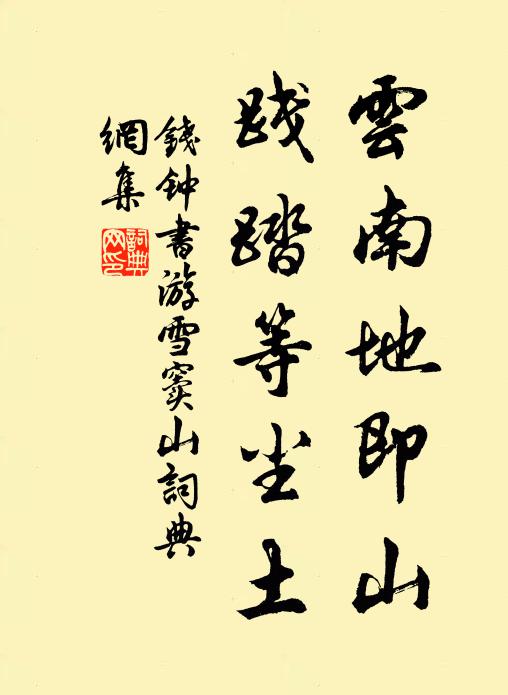 雲南地即山
踐踏等尘土
錢钟書游雪窦山詞典
網集
詞典
网印